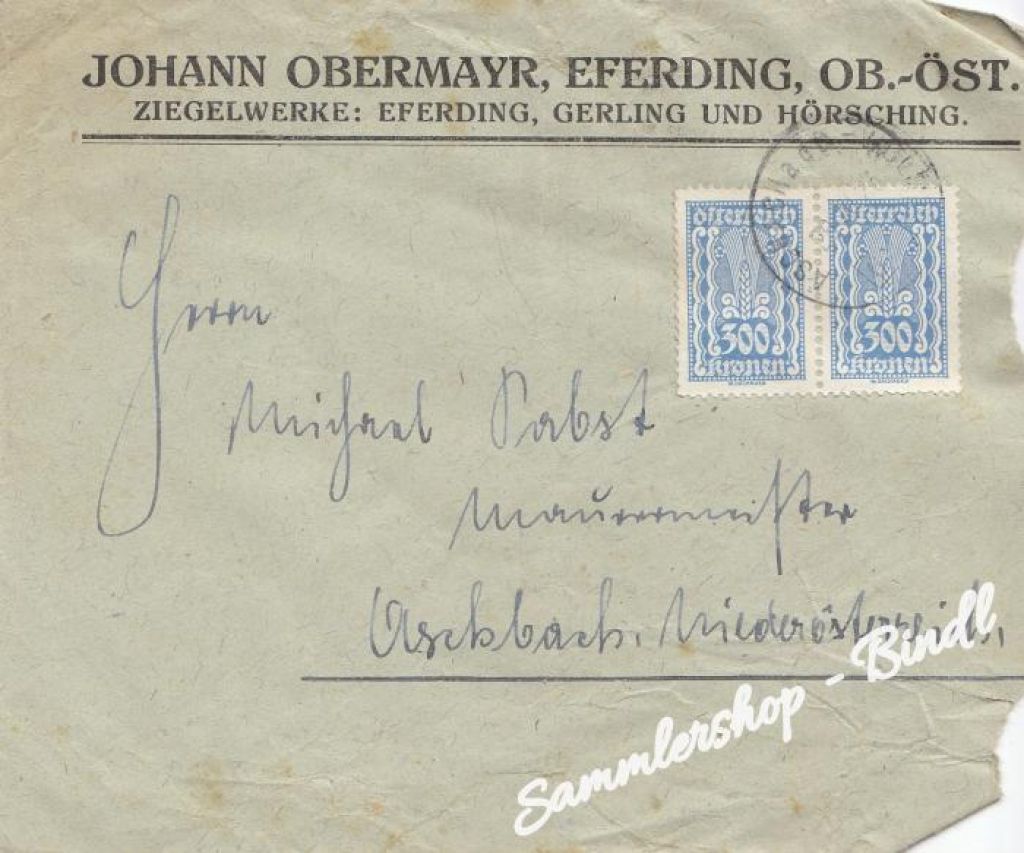 JOHANN OBERMAYR, EFERDING, OB.-ÖST.
ZIEGELWERKE: EFERDING, GERLING UND HÖRSCHING.
österreich österreich
300 300
kronen kronen
Herrn
Michael Pabst
Maurermeister
Aschbach, Niederösterreich,
Sammlershop - Bindl